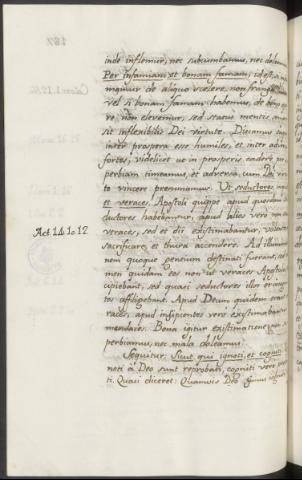 inde inflemur, nec subcumbamus, nec dolem
Per infamiam et bonam famam, id est, si in
mimur de aliquo scelere, non frang
vel si bonam famam habemus, de bono
re, non elevemur, sed status mentis
sit inflexibilis Dei virtute. Discamus
inter prospera esse humiles, et inter adv
fortes, videlicet ut in prosperis cadere
perbiam timeamus, et adversa, cum Dei
to vincere praesumamus. Ut seductores
et veraces. Apostoli quippe apud quosdam
ductores habebantur, apud alios vero
veraces, sed et dii existimabantur,
Act 14 1o 12
sacrificare, et thura accendere. Ad
non quoque gentium destinati fuerant,
men quidam eos non ut veraces Apostol
cipiebant, sed quasi seductores illos
tos affligebant. Apud Deum quidem
races, apud insipientes vero existimabant
mendaces. Bona igitur existimatione
perbiamus, nec mala doleamus.
Sequitur: Sicut qui ignoti et cogniti
noti à Deo sunt reprobati, cogniti vero
ti. Quasi diceret: Quamvis Deo simus